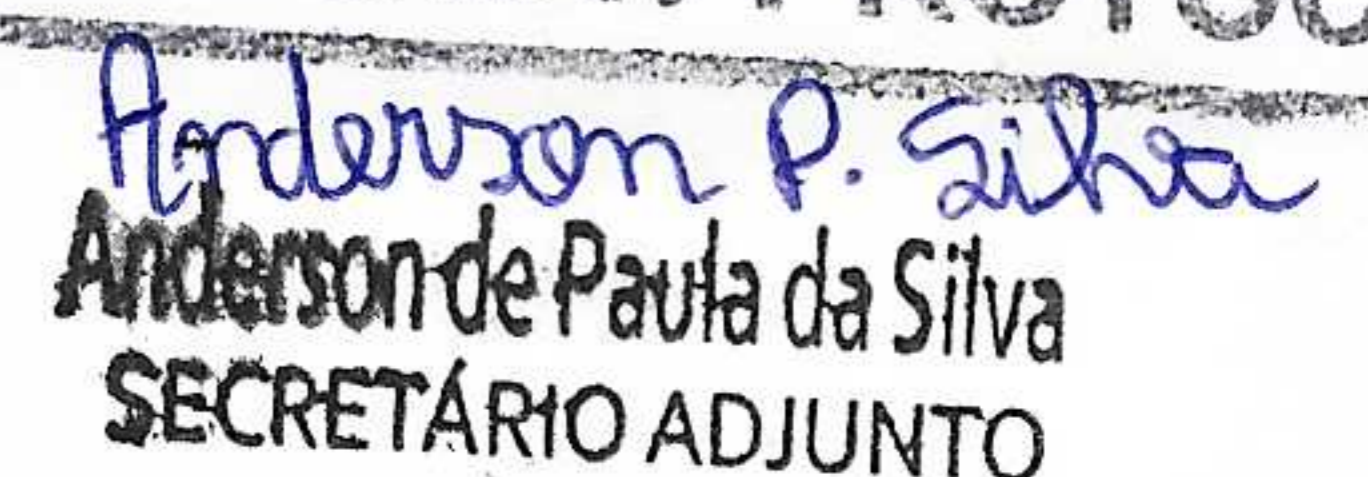 Anderson P. Silva
Anderson de Paula da Silva
SECRETÁRIO ADJUNTO